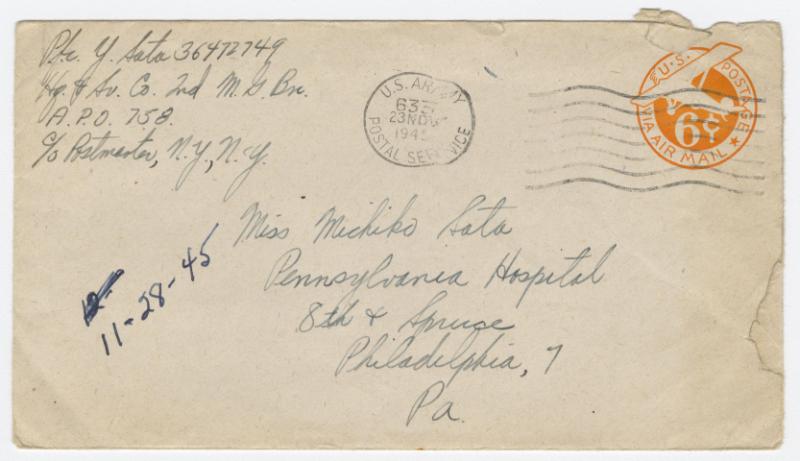 Pfc. Y. Sata 36472749
Hq. & Sv. Co. 2nd M. G. Bn.
A.P.O. 758.
c/o Postmaster, N.Y., N.Y.
U.S. ARMY
POSTAL SERVICE
23 NOV
194
U.S. POSTAGE
6¢
VIA AIR MAIL
Miss Michiko Sata
Pennsylvania Hospital
8th & Spruce
Philadelphia, 7
Pa.
11-28-45